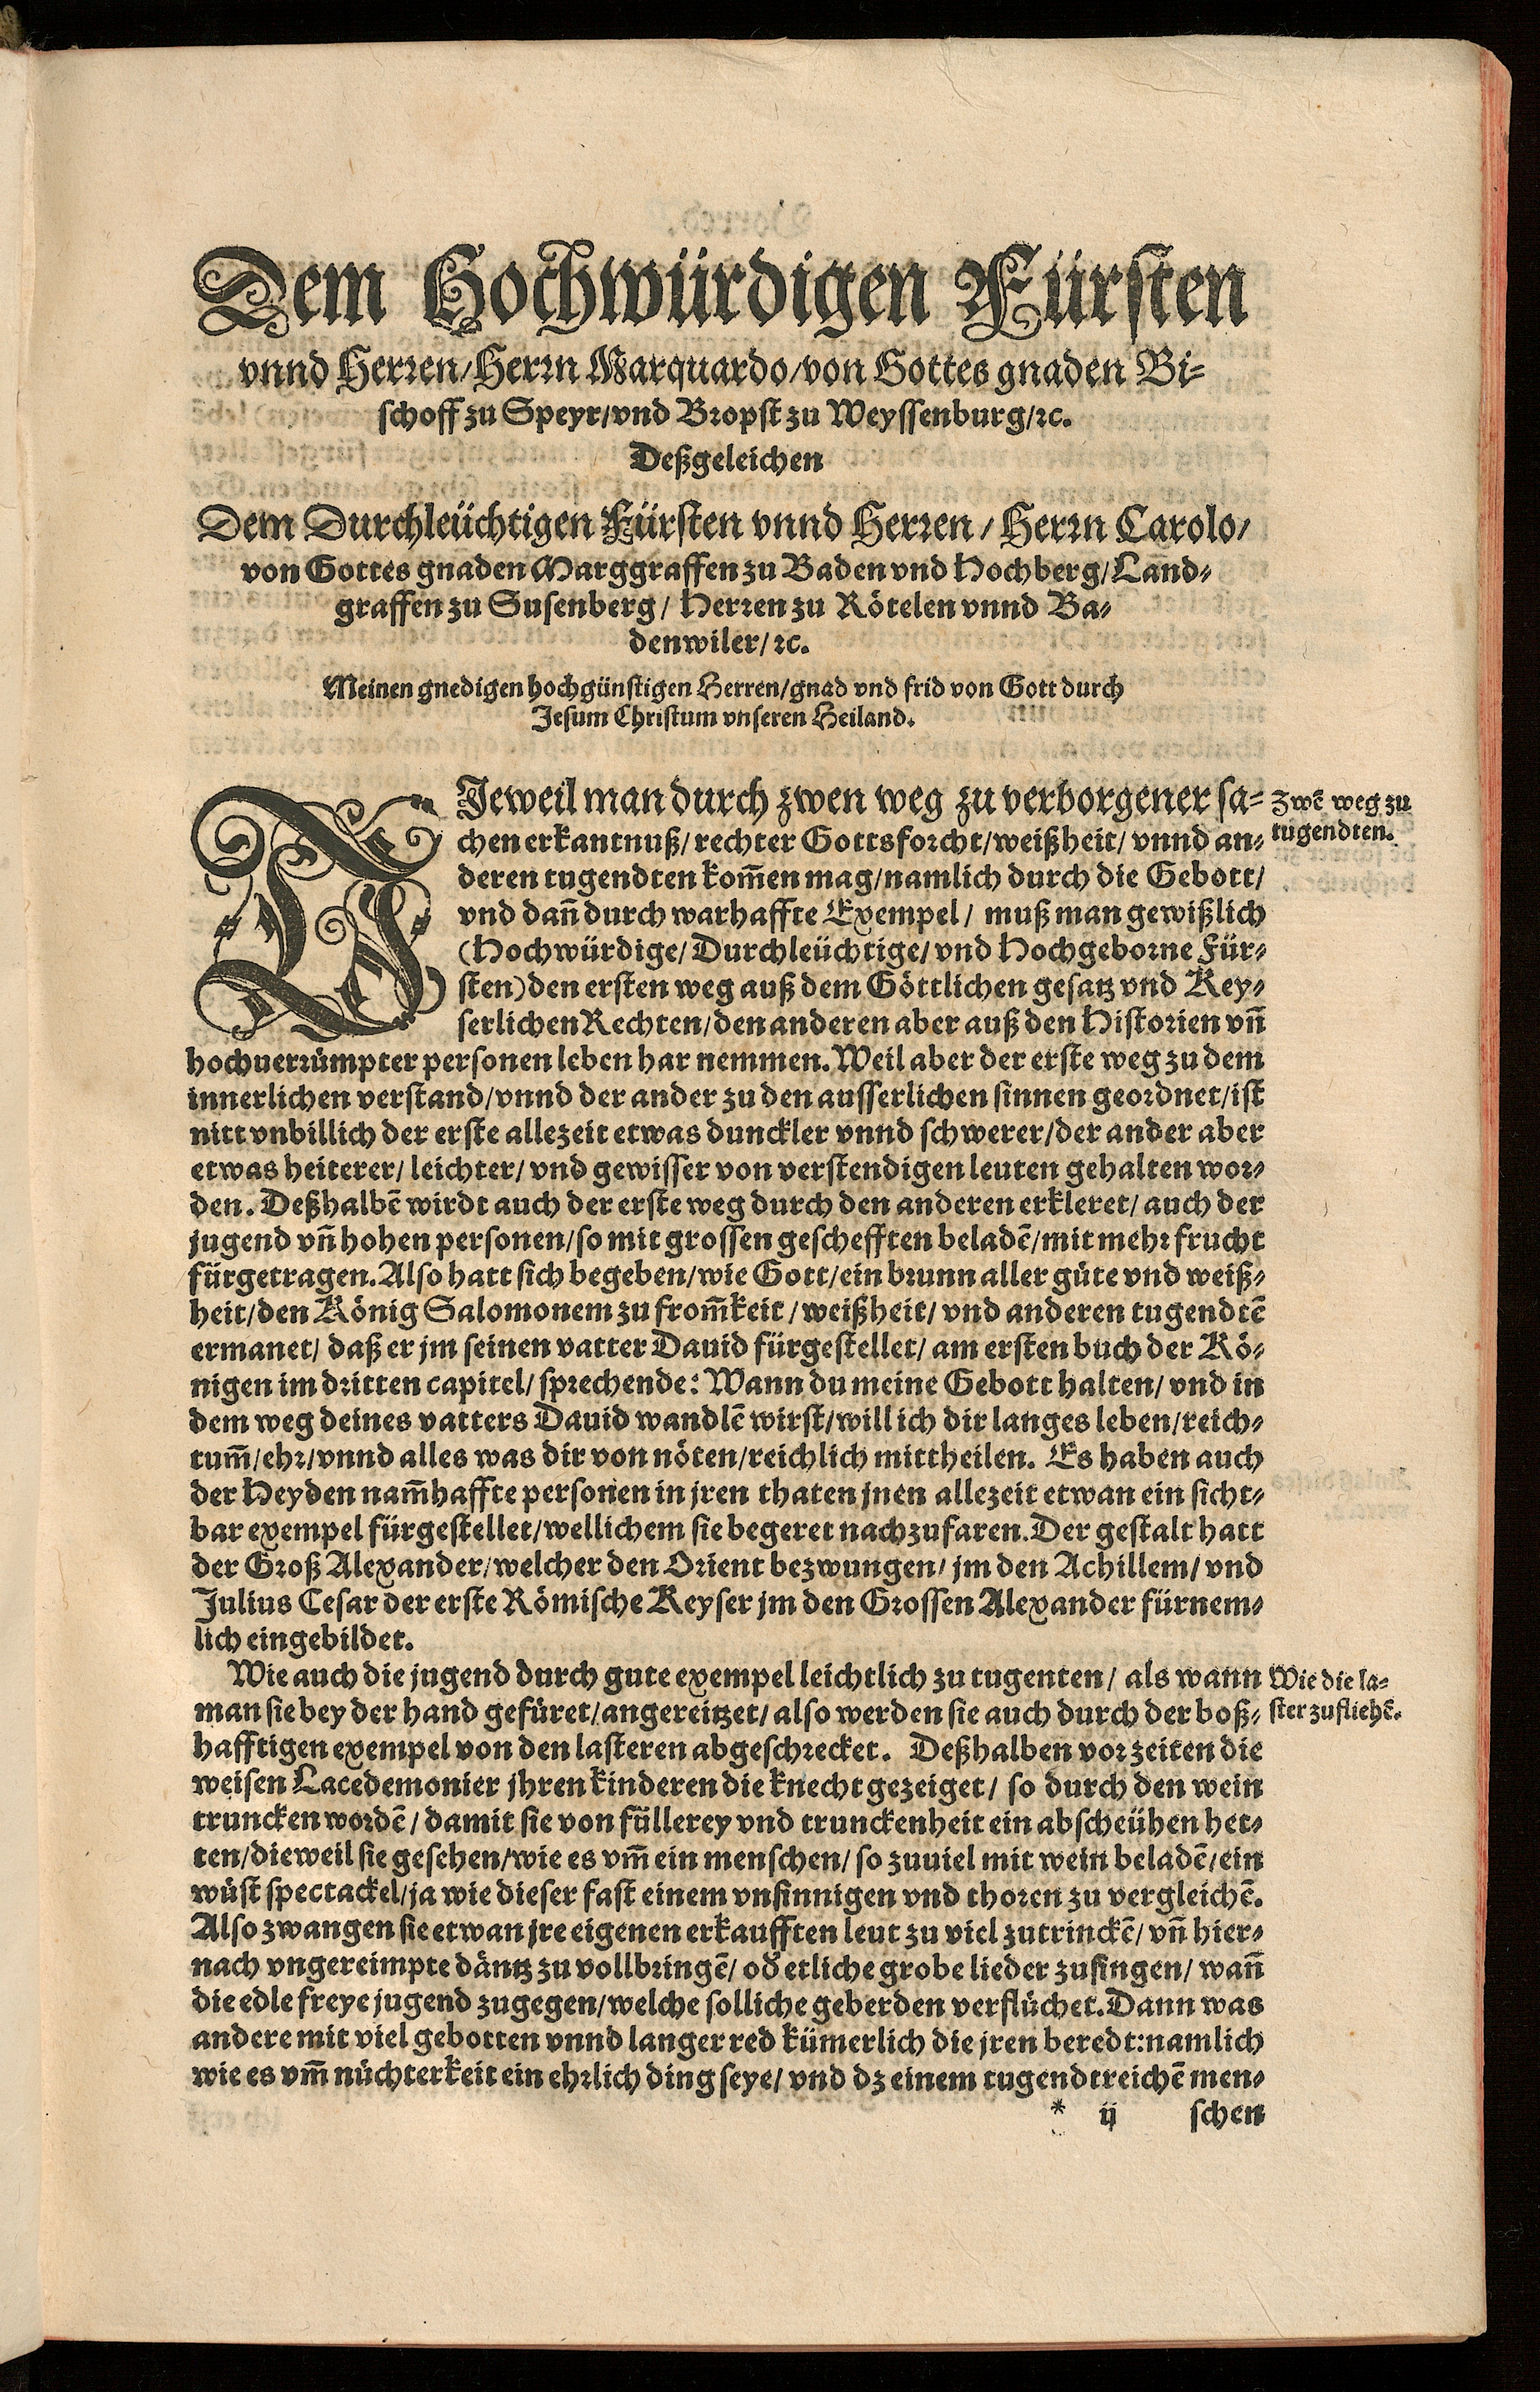 Dem Hochwürdigen Fürsten
vnnd Herren/Herrn Marquardo/von Gottes gnaden Bi-
schoff zu Speyr/vnd Bropst zu Weyssenburg/ꝛc.
Deßgeleichen
Dem Durchleüchtigen Fürsten vnnd Herren/Herrn Carolo/
von Gottes gnaden Marggraffen zu Baden vnd Hochberg/Land-
graffen zu Susenberg/Herren zu Rötelen vnnd Ba-
denwiler/ꝛc.
Meinen gnedigen hochgünstigen Herren/gnad vnd frid von Gott durch
Jesum Christum vnseren Heiland.
DJeweil man durch zwen weg zu verborgener sa-
chen erkantnuß/rechter Gottsforcht/weißheit/vnnd an-
deren tugendten kom̃en mag/namlich durch die Gebott/
vnd dañ durch warhaffte Exempel/muß man gewißlich
(Hochwürdige/Durchleüchtige/vnd Hochgeborne Für-
sten) den ersten weg auß dem Göttlichen gesatz vnd Key-
serlichen Rechten/den anderen aber auß den Historien vñ
hochuerrümpter personen leben har nemmen. Weil aber der erste weg zu dem
innerlichen verstand/vnnd der ander zu den ausserlichen sinnen geordnet/ist
nitt vnbillich der erste allezeit etwas dunckler vnnd schwerer/der ander aber
etwas heiterer/leichter/vnd gewisser von verstendigen leuten gehalten wor-
den. Deßhalbẽ wirdt auch der erste weg durch den anderen erkleret/auch der
jugend vñ hohen personen/so mit grossen geschefften beladẽ/mit mehr frucht
fürgetragen. Also hatt sich begeben/wie Gott/ein brunn aller güte vnd weiß-
heit/den König Salomonem zu from̃keit/weißheit/vnd anderen tugendtẽ
ermanet/daß er jm seinen vatter Dauid fürgestellet/am ersten buch der Kö-
nigen im dritten capitel/sprechende: Wann du meine Gebott halten/vnd in
dem weg deines vatters Dauid wandlẽ wirst/will ich dir langes leben/reich-
tum̃/ehr/vnnd alles was dir von nöten/reichlich mittheilen. Es haben auch
der Heyden nam̃haffte personen in jren thaten jnen allezeit etwan ein sicht-
bar exempel fürgestellet/wellichem sie begeret nachzufaren. Der gestalt hatt
der Groß Alexander/welcher den Orient bezwungen/jm den Achillem/vnd
Julius Cesar der erste Römische Keyser jm den Grossen Alexander fürnem-
lich eingebildet.
Wie auch die jugend durch gute exempel leichtlich zu tugenten/als wann
man sie bey der hand gefüret/angereitzet/also werden sie auch durch der boß-
hafftigen exempel von den lasteren abgeschrecket. Deßhalben vor zeiten die
weisen Lacedemonier jhren kinderen die knecht gezeiget/so durch den wein
truncken wordẽ/damit sie von füllerey vnd trunckenheit ein abscheühen het-
ten/dieweil sie gesehen/wie es vm̃ ein menschen/so zuuiel mit wein beladẽ/ein
wüst spectackel/ja wie dieser fast einem vnsinnigen vnd thoren zu vergleichẽ.
Also zwangen sie etwan jre eigenen erkaufften leut zu viel zutrinckẽ/vñ hier-
nach vngereimpte däntz zu vollbringẽ/od̕ etliche grobe lieder zusingen/wañ
die edle freye jugend zugegen/welche solliche geberden verflüchet. Dann was
andere mit viel gebotten vnnd langer red kümerlich die jren beredt:namlich
wie es vm̃ nüchterkeit ein ehrlich ding seye/vnd dz einem tugendtreichẽ men-
* ij schen
Zwẽ weg zu
tugendten.
Wie die la-
ster zu fliehẽ.